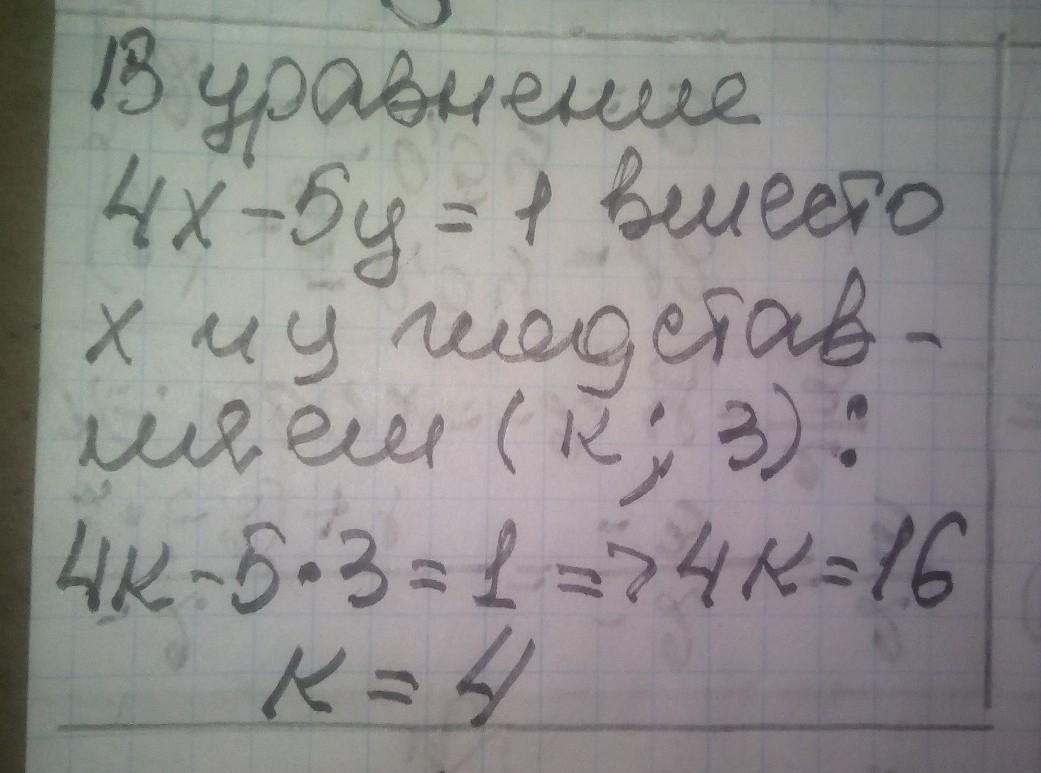 В уравнение
4х-5у=1 вместо
х и у подстав-
ляем (к; 3):
4к-5·3=1=>4к=16
к=4